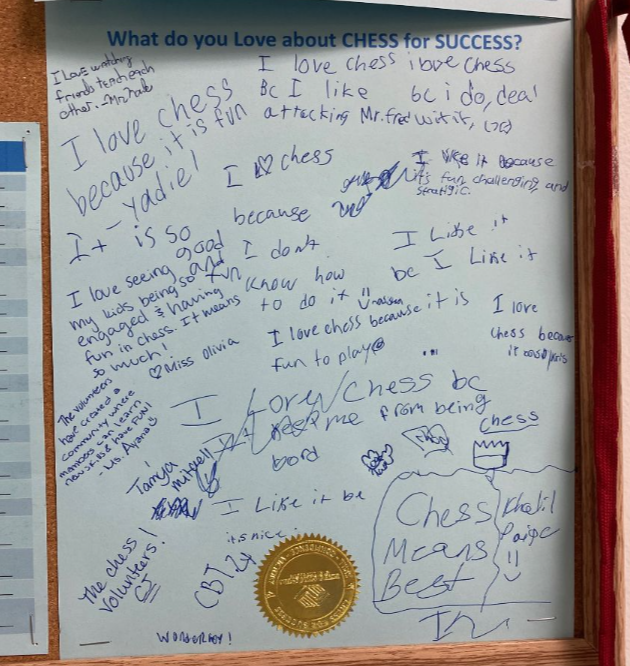 What do you Love about CHESS for SUCCESS?
I Love watching
friends teach each
other.
I love chess
because it is fun
- Yadiel
I love chess i love chess
Bc I like bc i do, deal
attacking Mr. fred wit it,
I chess
because
I don't
know how
to do it
I like it Because
it's fun challenging, and
stratigic.
It is so
good
and
fun
I Like it
be I Like it
I love seeing
my kids being so
engaged & having
fun in chess. It means
so much!
Miss Olivia
I love chess because it is
fun to play
...
I love
chess because
it
The volunteers
have created a
community where
members can learn
new skills & have FUN!
- Ms. Ayana
I Love Chess bc
keep me from being
bord
Tamya
Mitchell
I Like it be
it's nice.
CBT24
The chess
volunteers!
CJ
chess
Chess
Means
Best
Khalil
Paige
WONDERFUL!